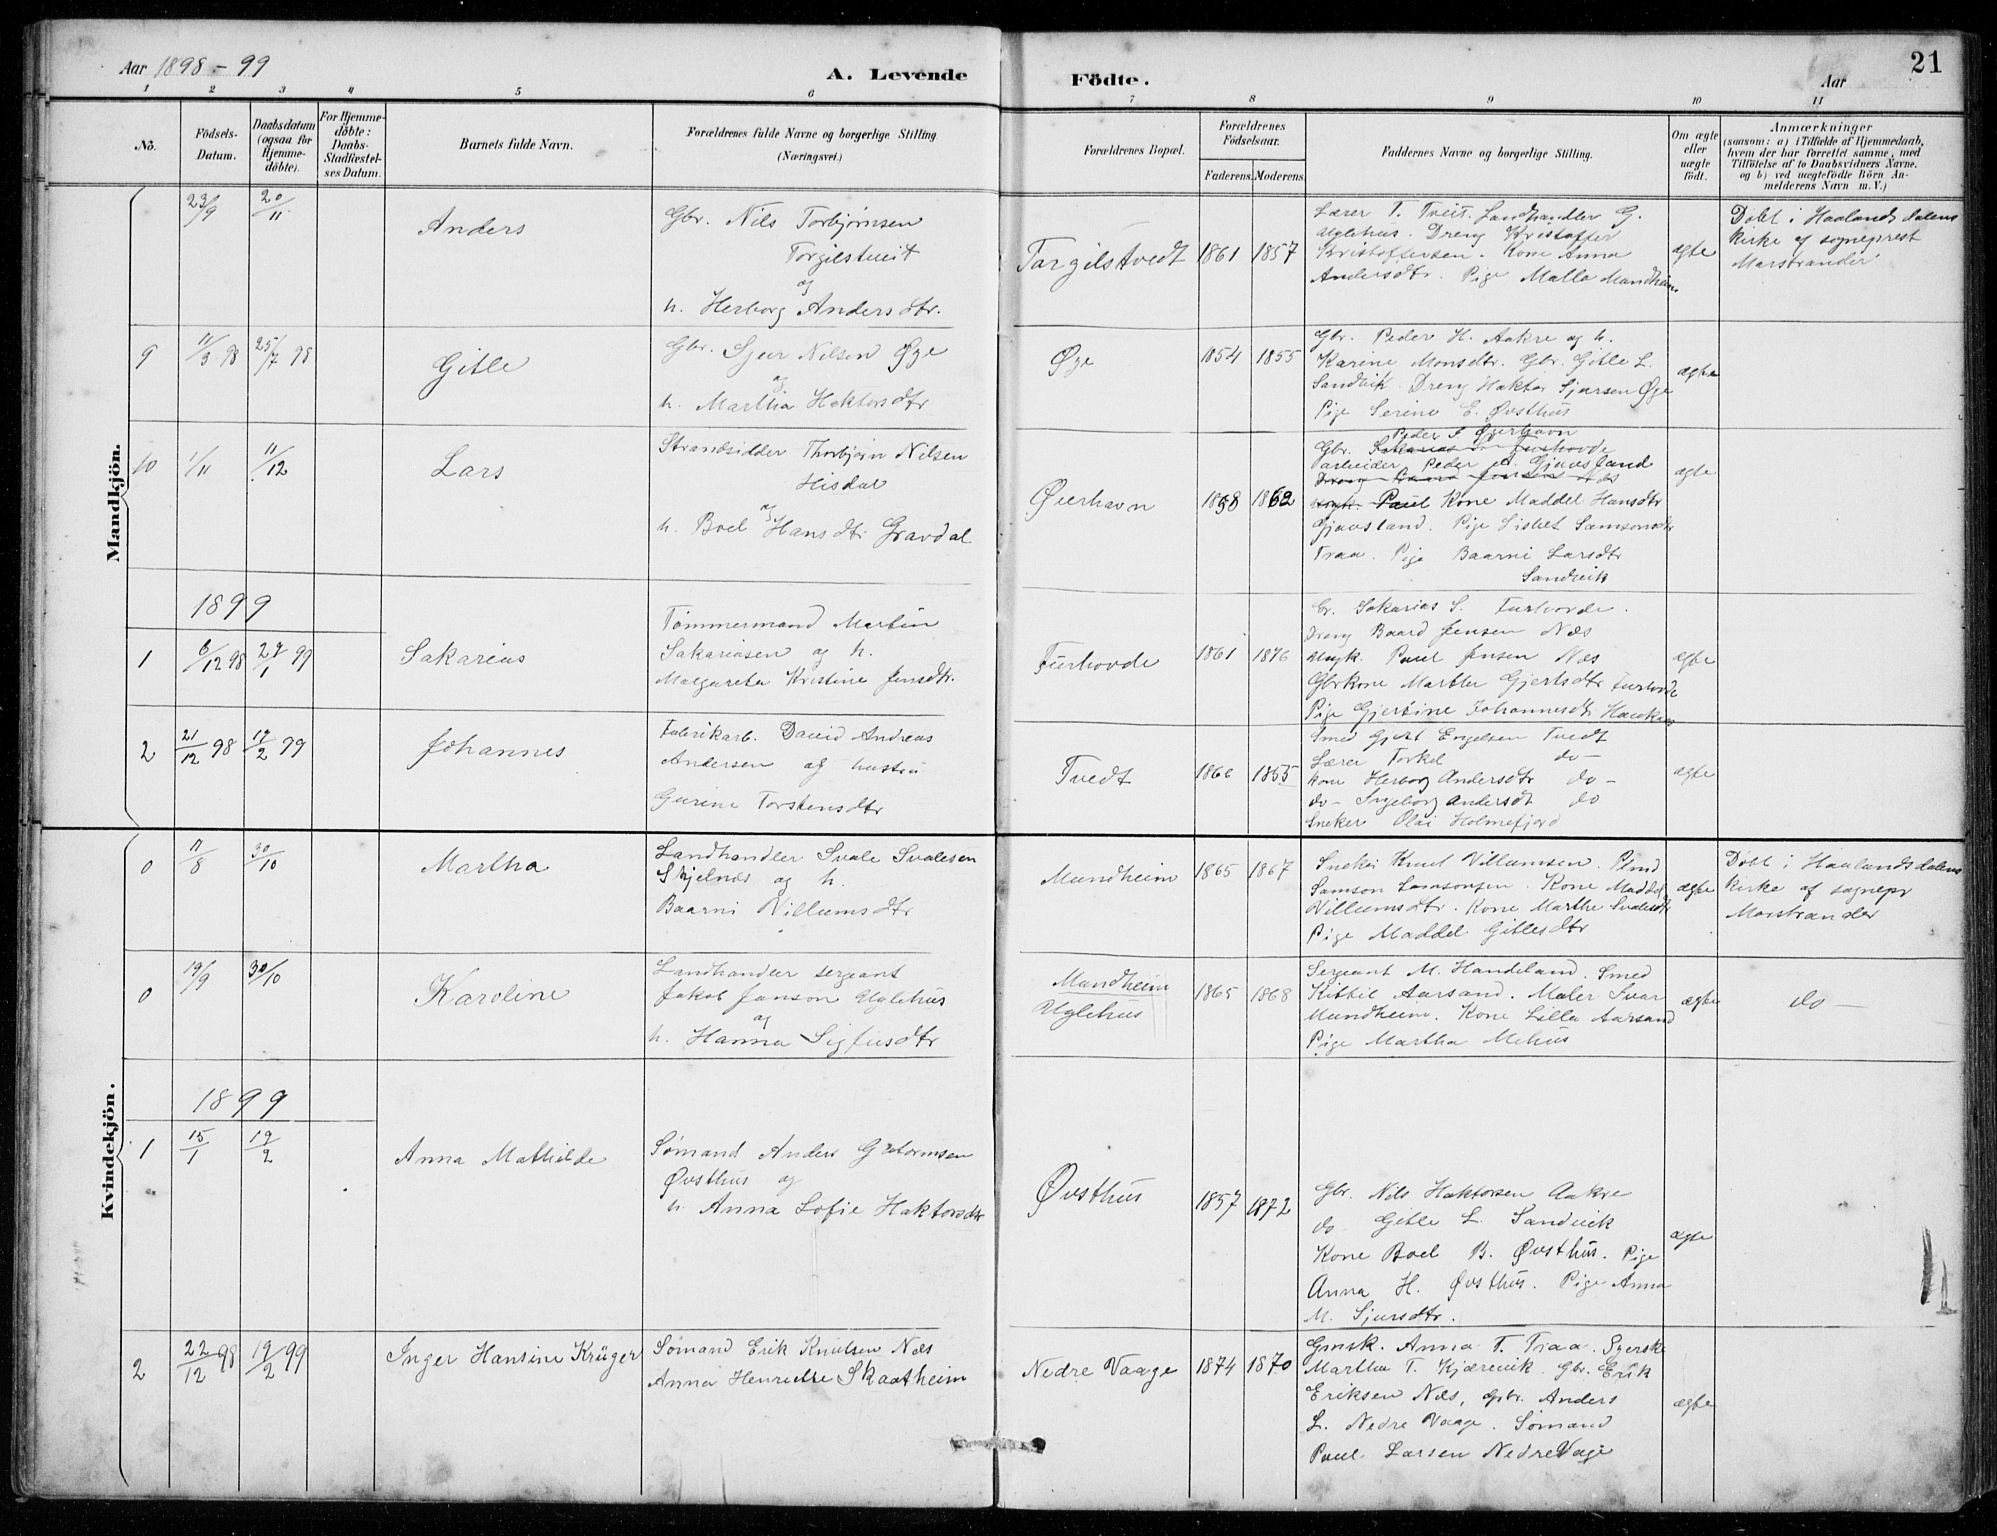 Aar 1898 - 99
A. Levende Födte.
Aar
21
1 2 3 4 5 6 7 8 9 10 11
No.
Födsels-Datum.
Daabsdatum (ogsaa for Hjemmedöbte).
For Hjemmedöbte: Daabs-Stadfæstelses Datum.
Barnets fulde Navn.
Forældrenes fulde Navne og borgerlige Stilling (Næringsvei.)
Forældrenes Bopæl.
Forældrenes Födselsaar.
Faderens. Moderens.
Faddernes Navne og borgerlige Stilling.
Om ægte eller uægte födt.
Anmærkninger
(saasom: a) i Tilfælde af Hjemmedaab,
hvem der har forrettet samme, med
Tilföielse af to Daabsvidners Navne.
og b) ved uægtefödte Börn An-
melderens Navn m. V.)
Mandkjön.
23/9 20/11 Anders
Gbr. Nils Torbjørnsen
Torgilstveit
og
h. Herborg Andersdtr.
Torgilstvedt 1861 1857
Lærer T. Tveit. Landhandler G.
Uglehus. Dreng Kristoffer
Kristoffersen. Kone Anna
Andersdtr. Pige Malla Mundheim
ægte
Døbt i Haalandsdalens
kirke af sogneprest
Marstrander
9 11/3 98 25/7 98 Gitle
Gbr. Sjur Nilsen Øye
og
h. Martha Haktorsdtr
Øye 1854 1855
Gbr. Peder H. Aakre og h.
Karine Monsdtr. Gbr. Gitle L.
Sandvik. Dreng Haktor Sjursen Øye
Pige Serine E. Øvsthus
ægte
10 1/11 11/12 Lars
Strandsidder Thorbjørn Nilsen
Hisdal
og
h. Boel Hansdtr Gravdal
Øierhavn 1858 1862
Peder J Øjerhavn
Gbr. Sakarias S. Furhovde
arbeider Peder Gjøvsland
Dreng Baard Jensen Næs
Ungk. Paul Kone Maddel Hansdtr
Gjøvsland. Pige Lisbet Samsonsdtr
Traa. Pige Baarni Larsdtr
Sandvik
ægte
1899
1 6/12 98 29/1 99 Sakarias
Tømmermand Martin
Sakariasen og h.
Margareta Kristine Jensdtr.
Furhovde 1861 1876
Gr. Sakarias S. Furhovde.
Dreng Baard Jensen Næs
Ungk. Paul Jensen Næs
Gbrkone Marthe Gjertsdtr Furhovde
Pige Gjertine Johannesdtr
ægte
2 21/12 98 19/2 99 Johannes
Fabrikarb. David Andreas
Andersen og hustru
Gurine Torstensdtr
Tvedt 1866 1855
Smed Gjert Engelsen Tvedt
Lærer Torkel do -
Kone Herborg Andersdtr do -
do - Ingeborg Andersdt do
Sneker Olai Holmefjord
ægte
Kvindekjön.
0 17/8 30/10 Martha
Landhandler Svale Svalesen
Skjelnæs og h.
Baarni Villumsdtr
Mundheim 1865 1867
Sneker Knut Villumsen.
Samson Samsonsen. Kone Maddel
Villumsdtr. Kone Marthe Svalesdtr
Pige Maddel Gitlesdtr
ægte
Døbt i Haalandsdalens
kirke af sognepr
Marstrander
0 19/9 30/10 Karoline
Landhandler sergeant
Jakob Janson Uglehus
og
h. Hanna Sigfusdtr
Mundheim
Uglehus
1865 1868
Sergeant M. Handeland. Smed
Kittil Aarsand. Maler Ivar
Mundheim. Kone Lilla Aarsand
Pige Martha Mehus
ægte
do -
1899
1 15/1 19/2 Anna Mathilde
Sømand Anders Guttormsen
Øvsthus og
h. Anna Sofie Haktorsdtr
Øvsthus 1857 1872
Gbr. Nils Haktorsen Aakre
do Gitle L. Sandvik
Kone Boel B. Øvsthus. Pige
Anna H. Øvsthus. Pige Anna
M. Sjursdtr.
ægte
2 22/12 98 19/2 99 Inger Hansine Krüger
Sømand Erik Knutsen Næs
Anna Henrikke Skaatheim
Nedre Vaage 1874 1870
Gmsk. Anna T. Traa. Syerske
Martha T. Kjærevik. Gbr. Erik
Eriksen Næs, Gbr. Anders
L. Nedre Vaage. Sømand
Paul Larsen Nedre Vage
ægte